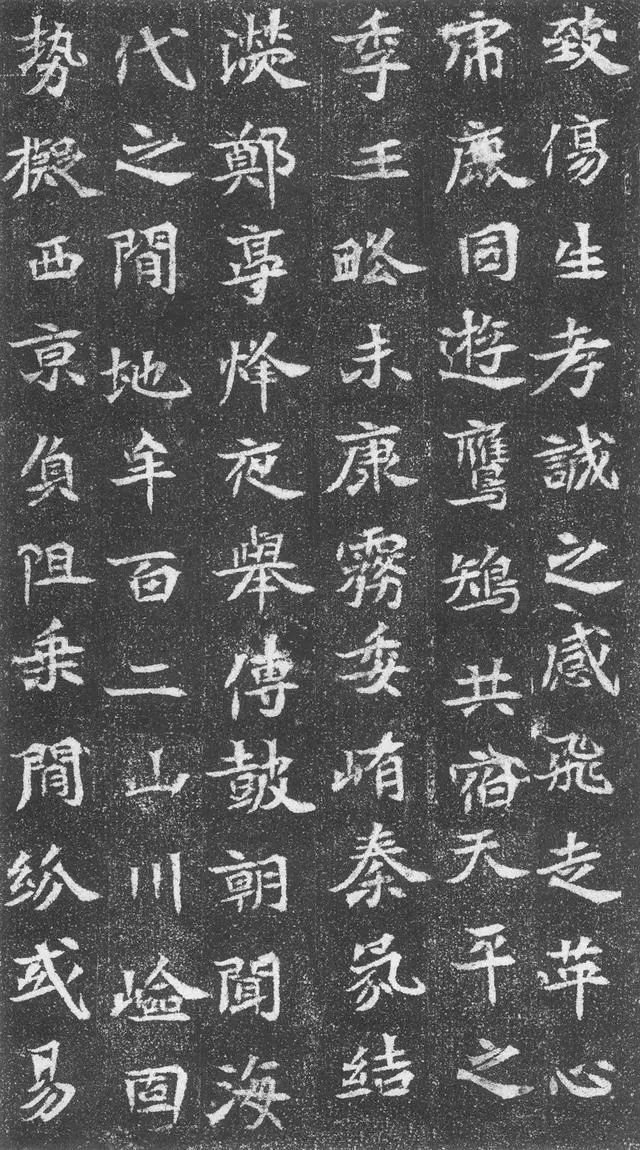 致傷生孝誠之感飛走革心
虎鹿同遊鷹鴙共宿天平之
季王略未康霧委崤秦氛結
滎鄭亭烽夜舉傳鼓朝聞海
代之間地牟百二山川嶮固
勢擬西京負阻乗間紛或易